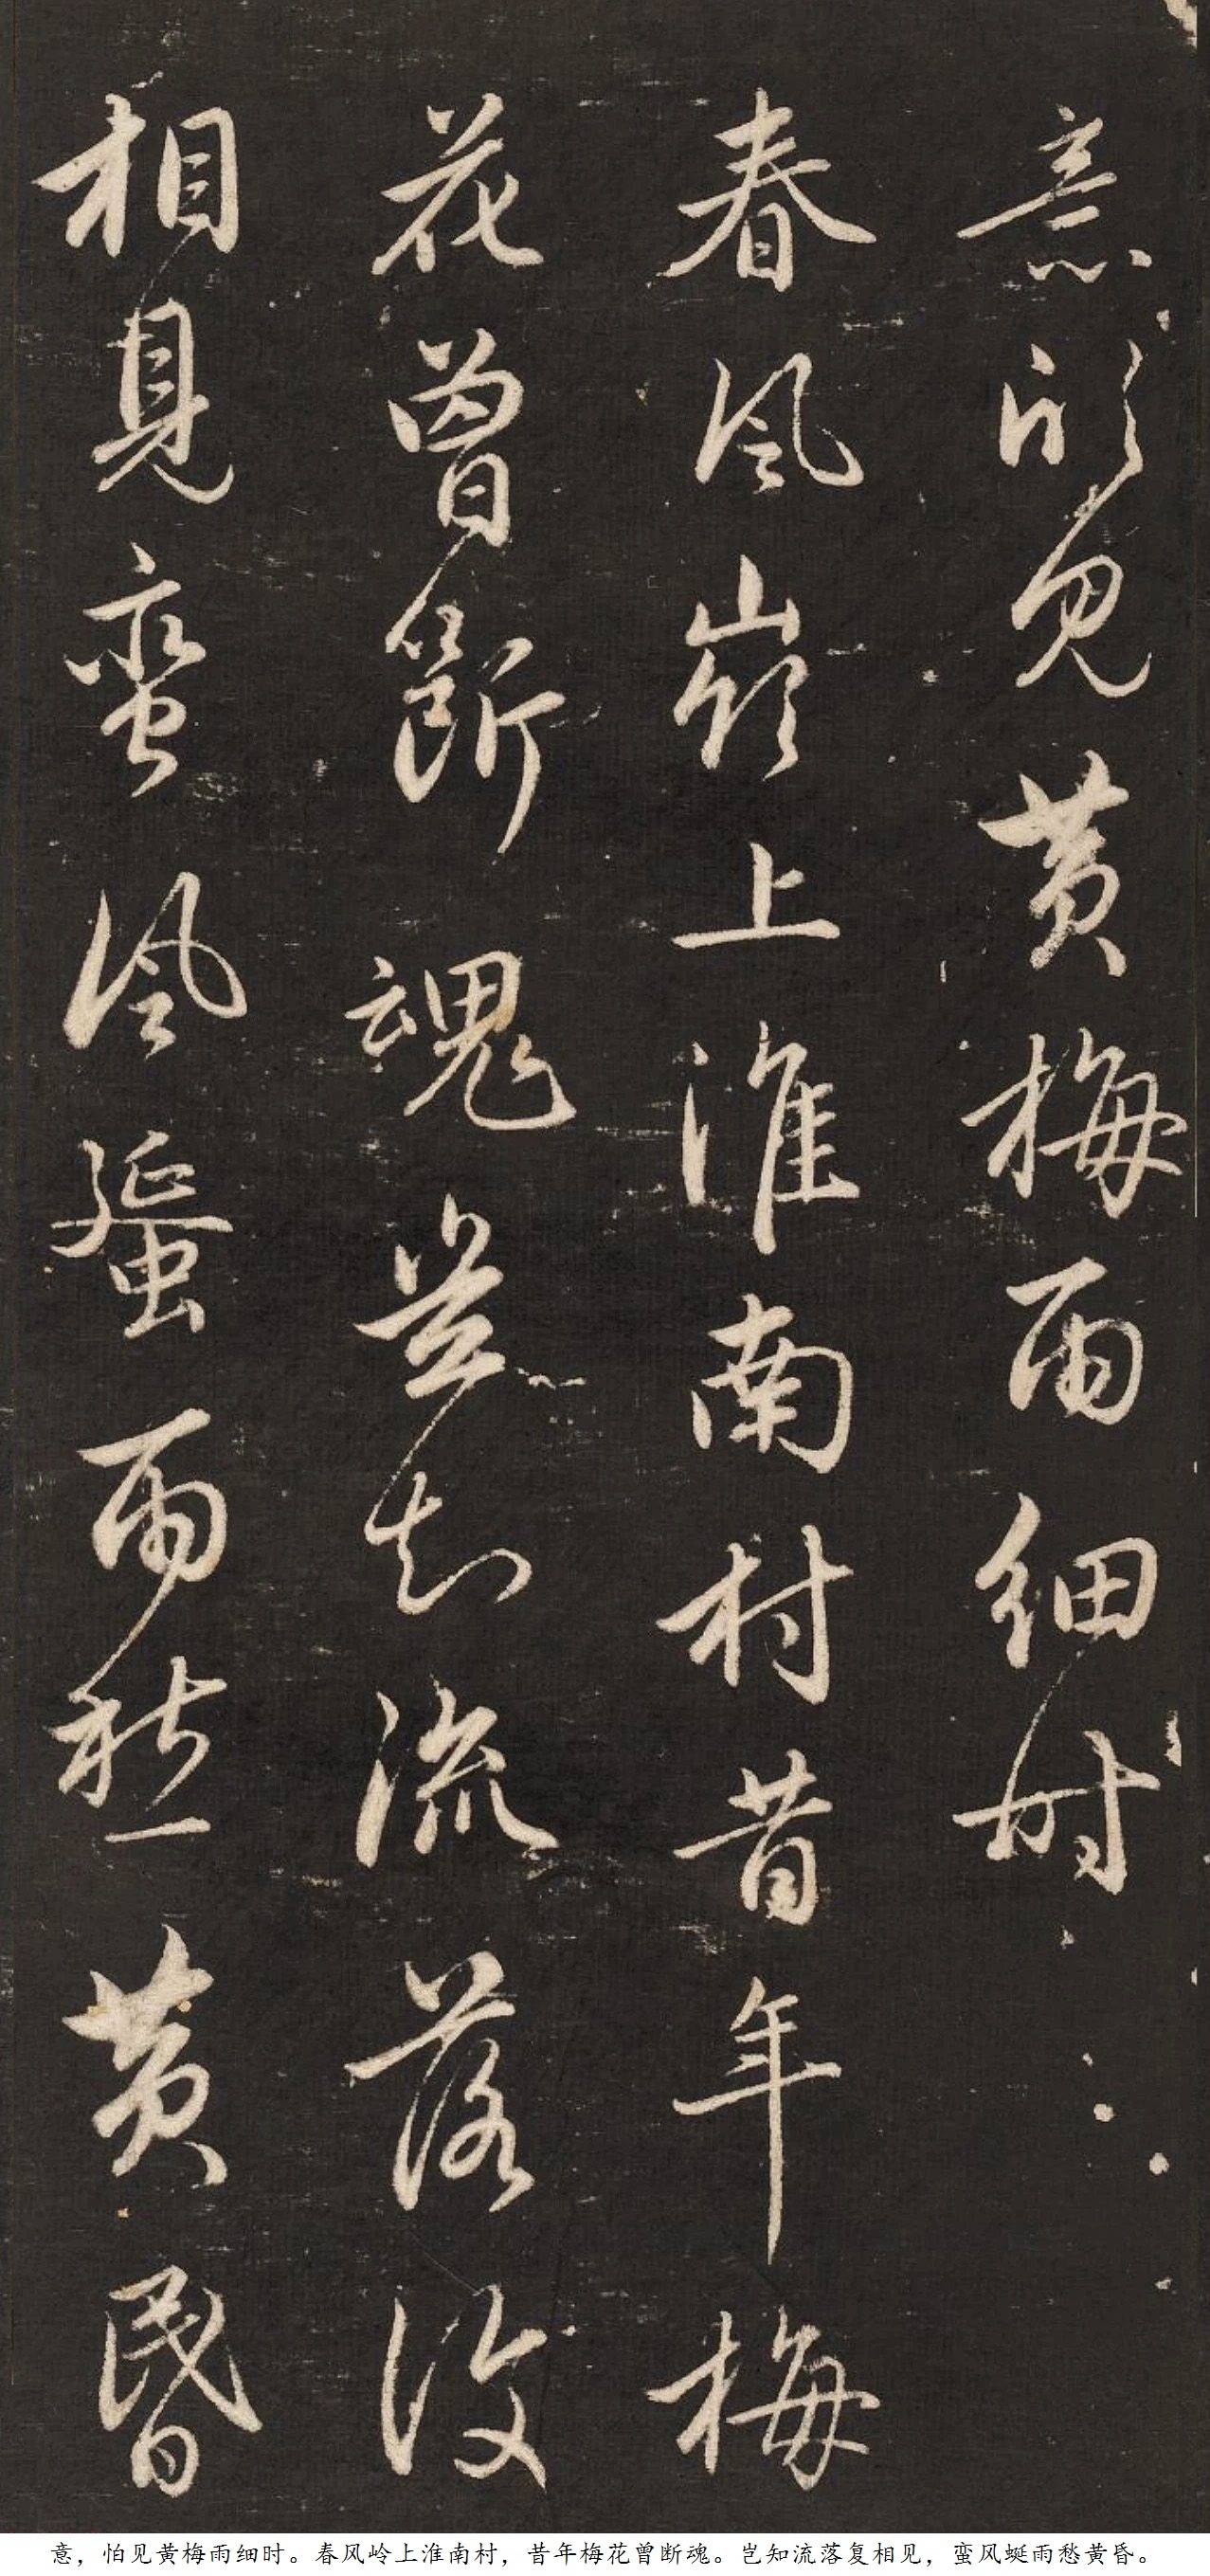 意見黄梅雨細時
春風嶺上淮南村昔年梅
花曾斷魂豈知流落復
相見蠻風蜑雨愁黄昏
意，怕见黄梅雨细时。春风岭上淮南村，昔年梅花曾断魂。岂知流落复相见，蛮风蜒雨愁黄昏。